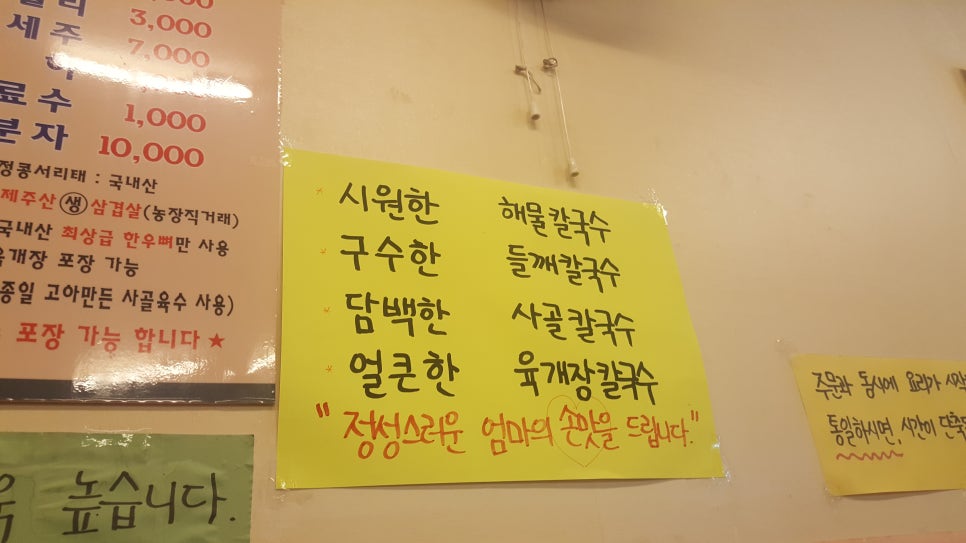 3,000
세주 7,000
료수 1,000
분자 10,000
정콩서리태 : 국내산
제주산 생 삼겹살(농장직거래)
국내산 최상급 한우뼈만 사용
육개장 포장 가능
종일 고아만든 사골육수 사용)
포장 가능 합니다 ★
높습니다.
* 시원한 해물칼국수
* 구수한 들깨칼국수
* 담백한 사골칼국수
* 얼큰한 육개장칼국수
"정성스러운 엄마의 손맛을 드립니다."
주문과 동시에 요리가 시작
통일하시면, 시간이 단축